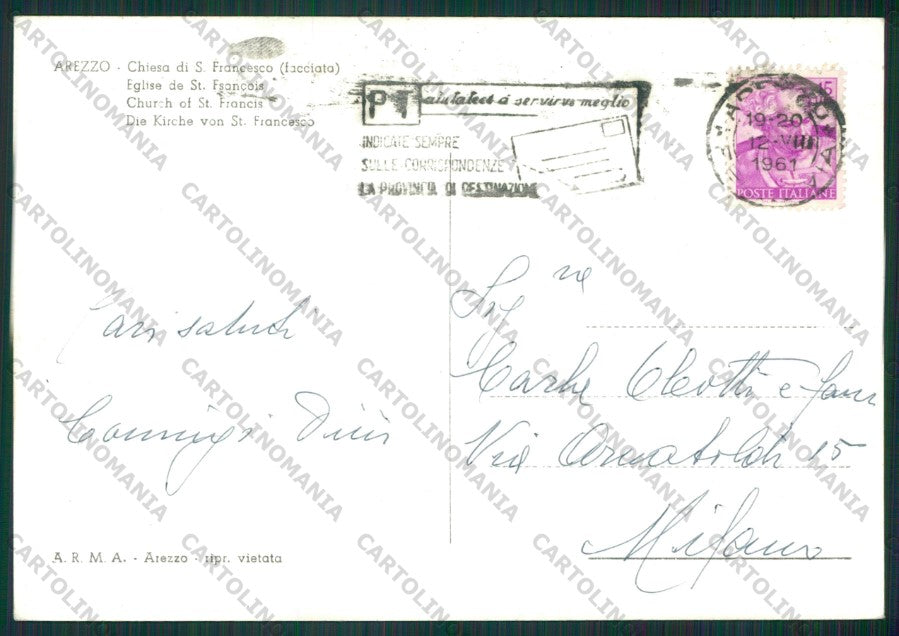 AREZZO - Chiesa di S. Francesco (facciata)
Eglise de St. Fsançois
Church of St. Francis
Die Kirche von St. Francesco
PT aiutateci a servirvi meglio
INDICATE SEMPRE
SULLE CORRISPONDENZE
LA PROVINCIA DI DESTINAZIONE
AREZZO
19-20
12-VIII
1961
15
POSTE ITALIANE
Cari saluti
Sig
Via 15
Milano
A. R. M. A. - Arezzo - ripr. vietata
CARTOLINOMANIA